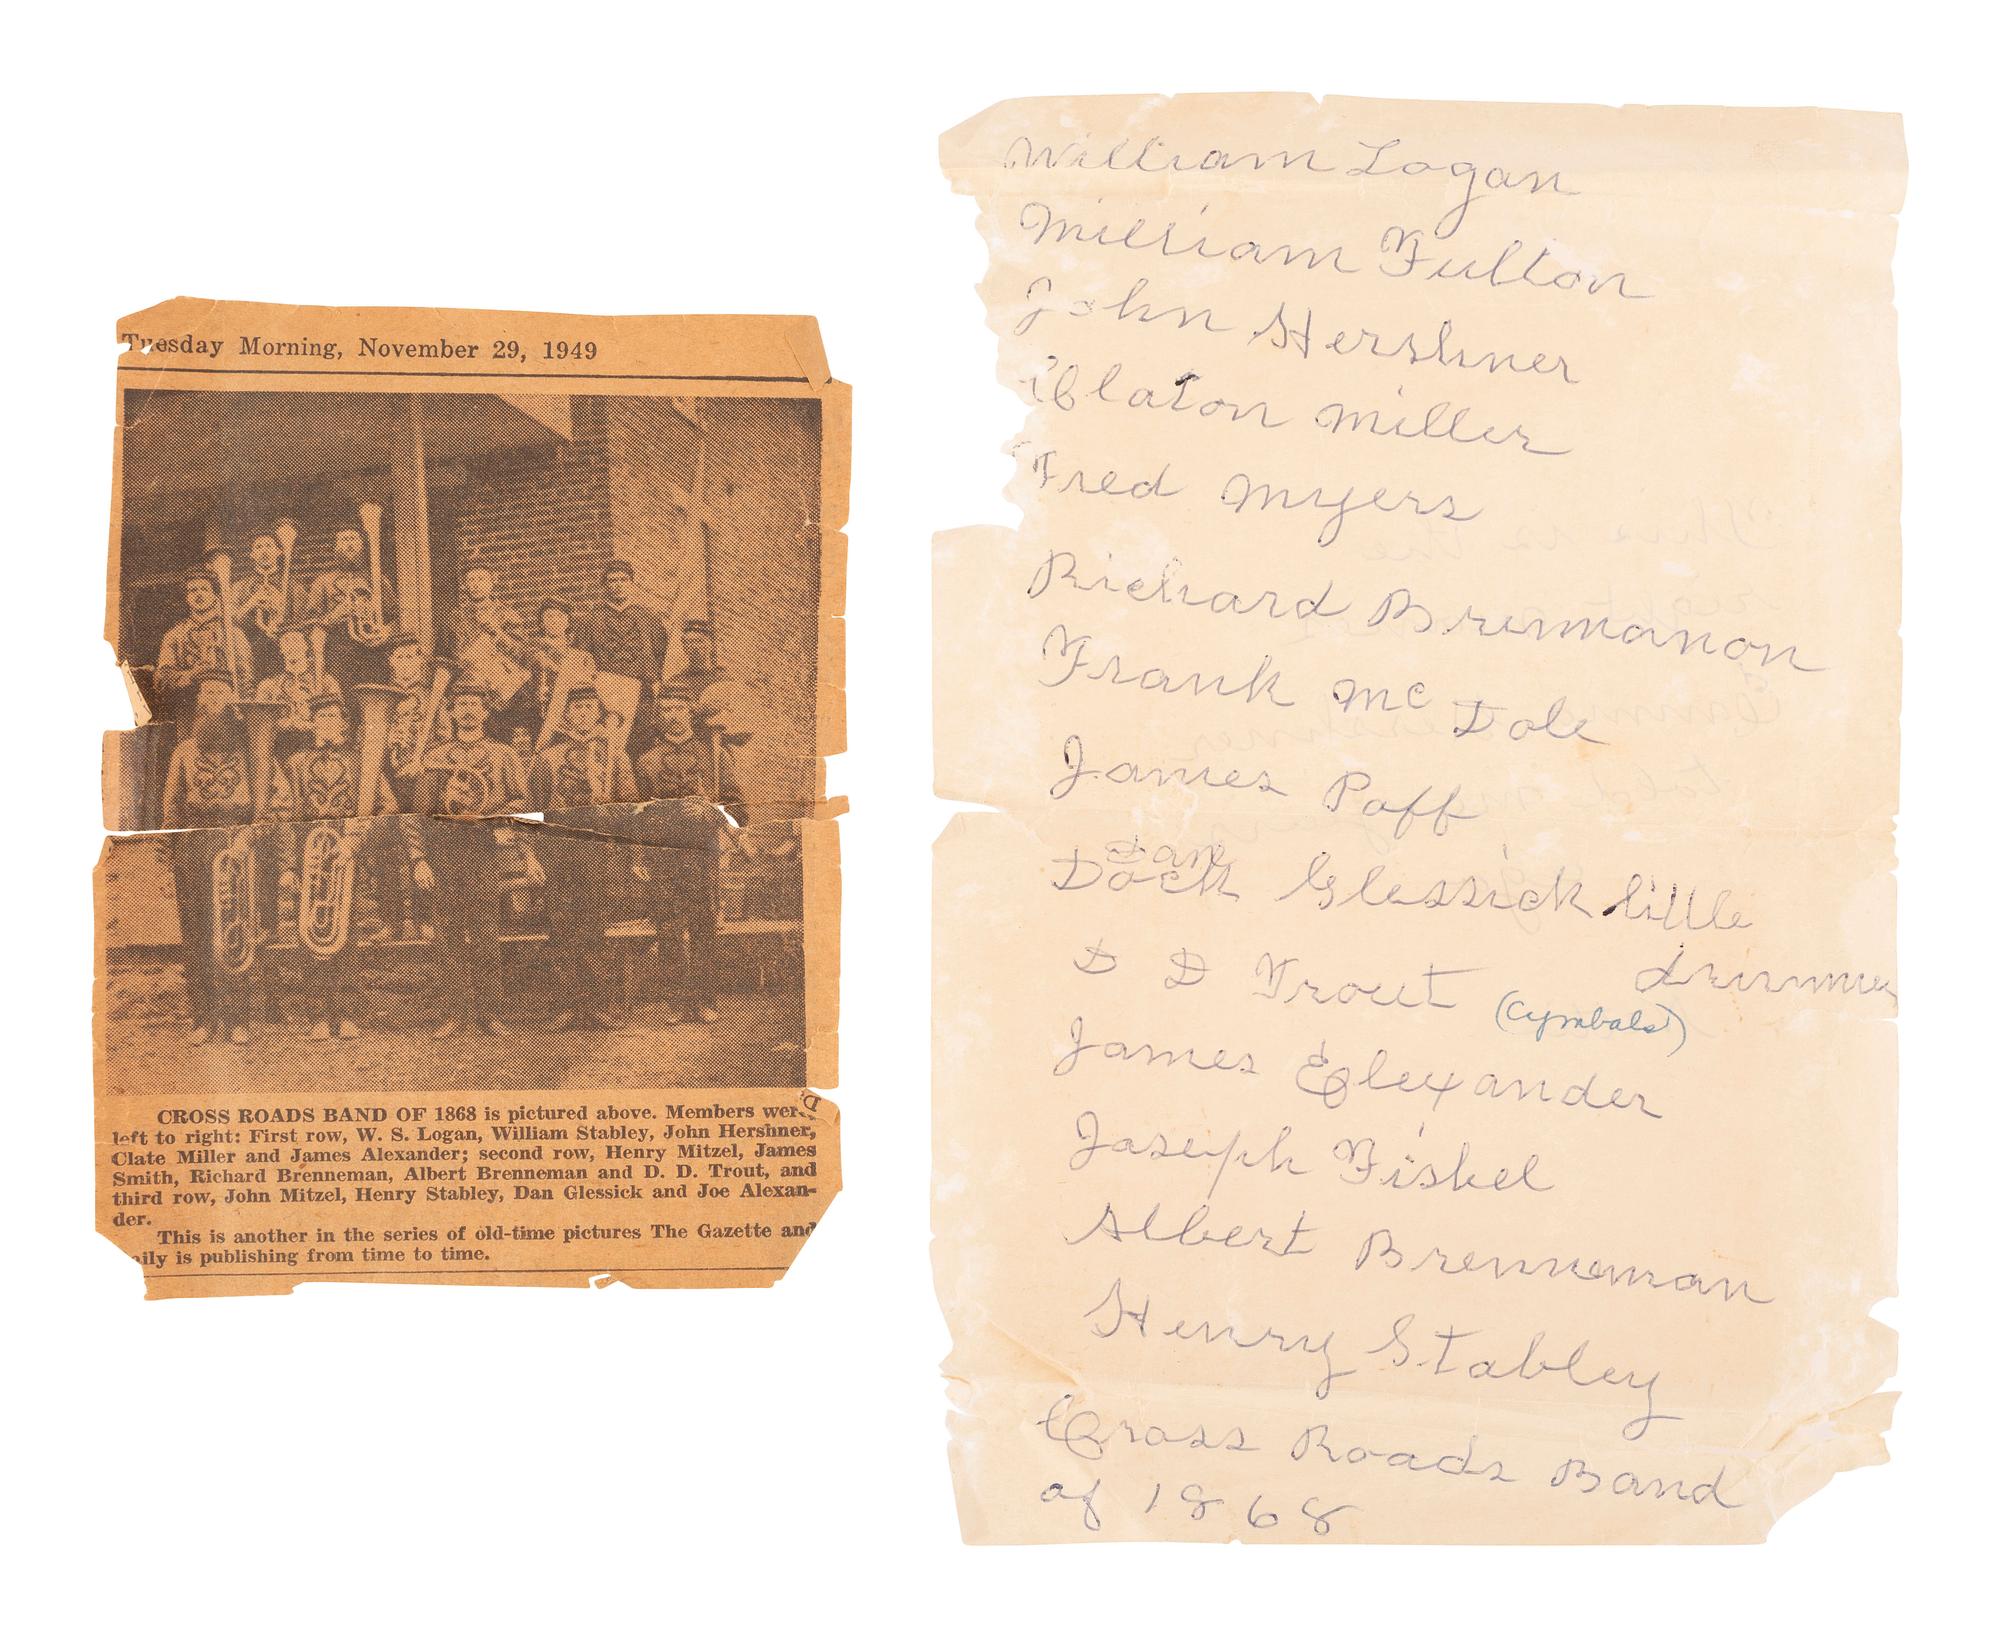 Tuesday Morning, November 29, 1949
CROSS ROADS BAND OF 1868 is pictured above. Members were,
left to right: First row, W. S. Logan, William Stabley, John Hershner,
Clate Miller and James Alexander; second row, Henry Mitzel, James
Smith, Richard Brenneman, Albert Brenneman and D. D. Trout, and
third row, John Mitzel, Henry Stabley, Dan Glessick and Joe Alexan-
der.
This is another in the series of old-time pictures The Gazette and
is publishing from time to time.
William Logan
William Fulton
John Hershner
Claton Miller
Fred Myers
Richard Brenmanon
Frank Mc Dole
James Poff
Dan
Dock Glessick little
drummer
D D Trout
(Cymbals)
James Alexander
Joseph Fishel
Albert Brenneman
Henry Stabley
Cross Roads Band
of 1868